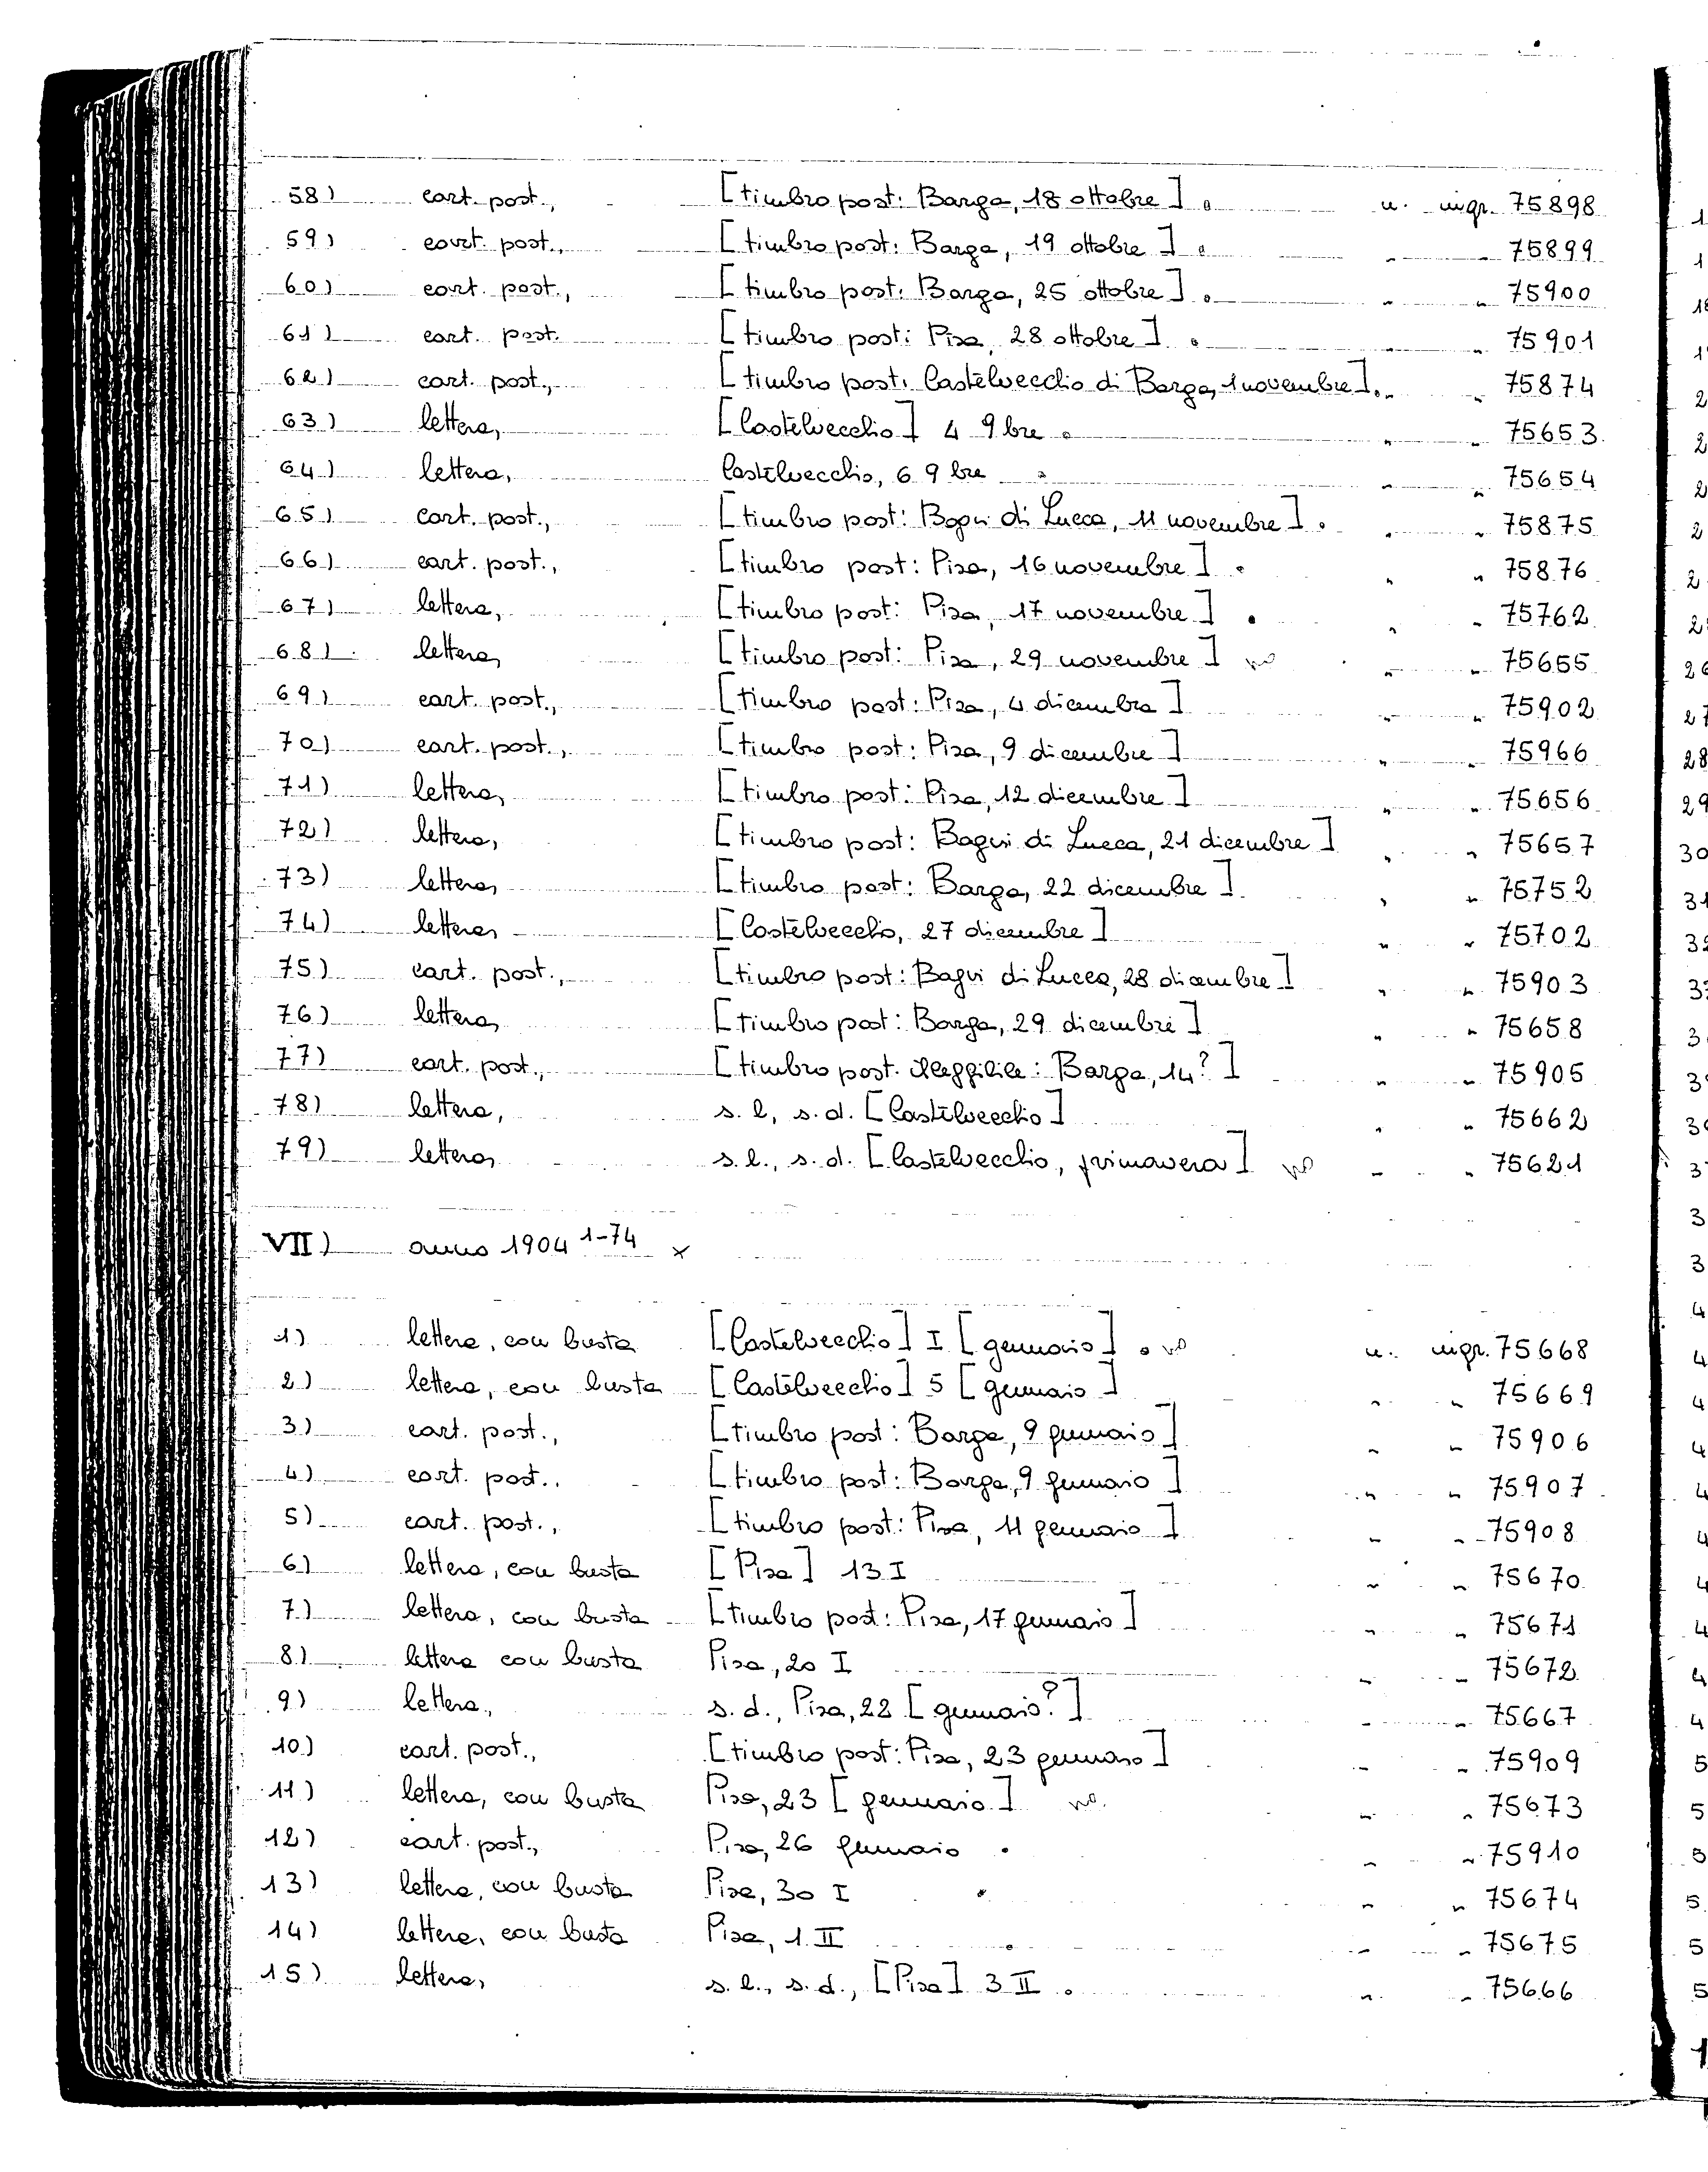 58) cart. post., [timbro post: Barga, 18 ottobre] n. ingr. 75898
59) cart. post., [timbro post: Barga, 19 ottobre] " " 75899
60) cart. post., [timbro post: Barga, 25 ottobre] " " 75900
61) cart. post. [timbro post: Pisa, 28 ottobre] " " 75901
62) cart. post., [timbro post: Castelvecchio di Barga, 1 novembre] " 75874
63) lettera, [Castelvecchio] 4 9bre " " 75653
64) lettera, Castelvecchio, 6 9bre " " 75654
65) cart. post., [timbro post: Bagni di Lucca, 11 novembre] " " 75875
66) cart. post., [timbro post: Pisa, 16 novembre] " " 75876
67) lettera, [timbro post: Pisa, 17 novembre] " " 75762
68) lettera, [timbro post: Pisa, 29 novembre] no " " 75655
69) cart. post., [timbro post: Pisa, 4 dicembre] " " 75902
70) cart. post., [timbro post: Pisa, 9 dicembre] " " 75966
71) lettera, [timbro post: Pisa, 12 dicembre] " " 75656
72) lettera, [timbro post: Bagni di Lucca, 21 dicembre] " " 75657
73) lettera, [timbro post: Barga, 22 dicembre] " " 75752
74) lettera, [Castelvecchio, 27 dicembre] " " 75702
75) cart. post., [timbro post: Bagni di Lucca, 28 dicembre] " " 75903
76) lettera, [timbro post: Barga, 29 dicembre] " " 75658
77) cart. post., [timbro post. illeggibile: Barga, 14?] " " 75905
78) lettera, s. l., s. d. [Castelvecchio] " " 75662
79) lettera, s. l., s. d. [Castelvecchio, primavera] no " " 75621
VII) anno 1904 1-74 x
1) lettera, con busta [Castelvecchio] I [gennaio] no n. ingr. 75668
2) lettera, con busta [Castelvecchio] 5 [gennaio] " " 75669
3) cart. post., [timbro post: Barga, 9 gennaio] " " 75906
4) cart. post., [timbro post: Barga, 9 gennaio] " " 75907
5) cart. post., [timbro post: Pisa, 11 gennaio] " " 75908
6) lettera, con busta [Pisa] 13 I " " 75670
7) lettera, con busta [timbro post: Pisa, 17 gennaio] " " 75671
8) lettera con busta Pisa, 20 I " " 75672
9) lettera, s. d., Pisa, 22 [gennaio?] " " 75667
10) cart. post., [timbro post: Pisa, 23 gennaio] " " 75909
11) lettera, con busta Pisa, 23 [gennaio] no. " " 75673
12) cart. post., Pisa, 26 gennaio " " 75910
13) lettera, con busta Pisa, 30 I " " 75674
14) lettera, con busta Pisa, 1 II " " 75675
15) lettera, s. l., s. d., [Pisa] 3 II " " 75666